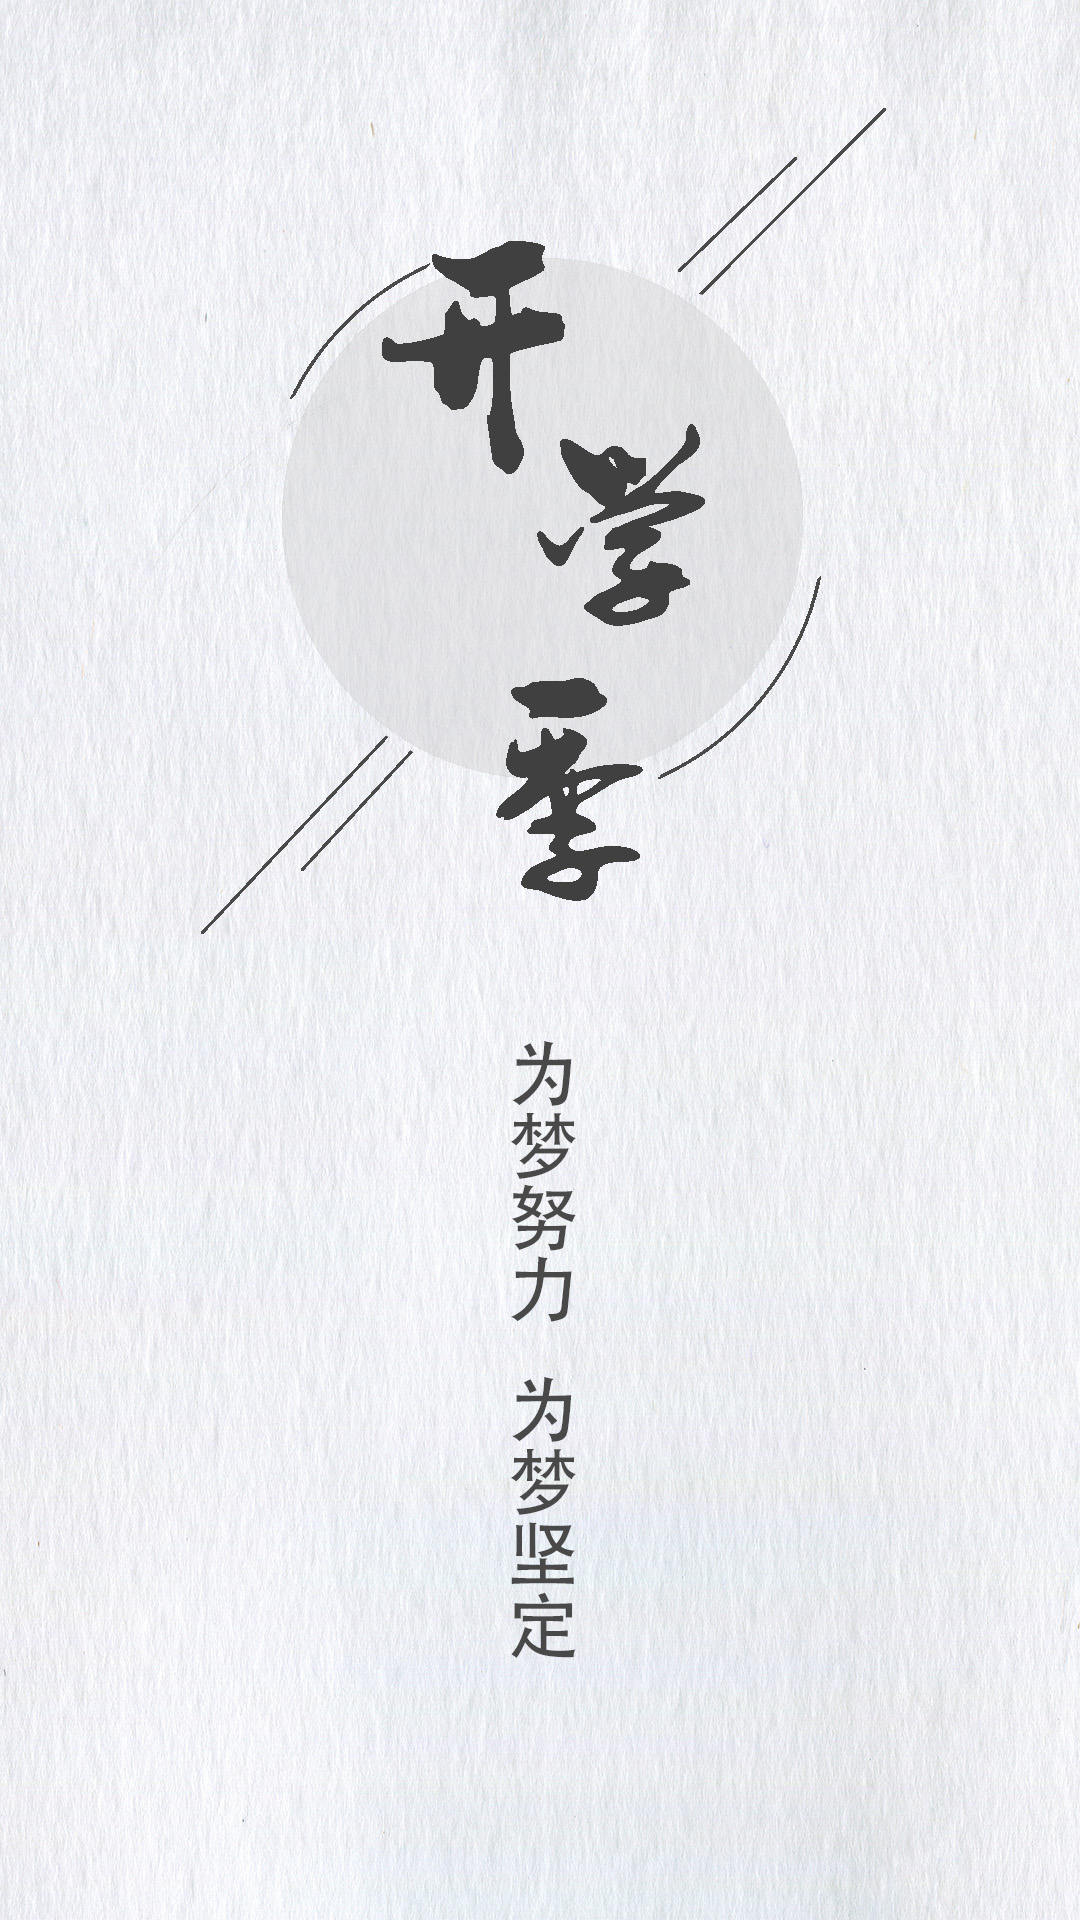 开学季
为梦努力 为梦坚定